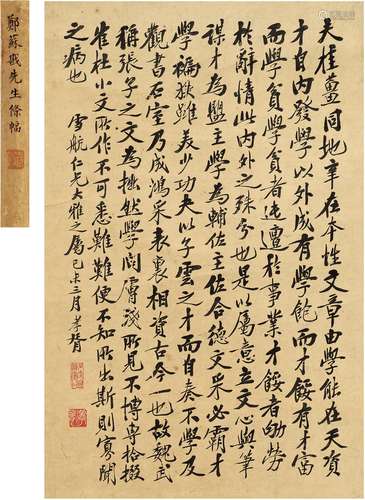 夫桂薑同地辛在本性文章由學能在天資
才自內發學以外成有學飽而才餒有才富
而學貧學貧者迍邅於事業才餒者劬勞
於辭情此內外之殊分也是以屬意立文心與筆
謀才為盟主學為輔佐主佐合德文采必霸才
學褊狹雖美少功夫以子雲之才而自奏不學及
觀書石室乃成鴻采表裏相資古今一也故魏武
稱張子之文為拙然學問膚淺所見不博專拾掇
崔杜小文所作不可悉難難便不知所出斯則寡聞
之病也
雪航仁兄大雅之屬己未三月孝胥
鄭蘇戡先生條幅